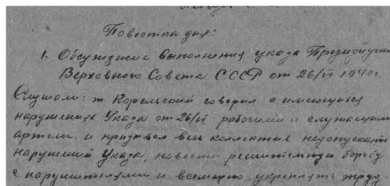 Повестка дня:
1. Обсуждение выполнения указа Президиума
Верховного Совета СССР от 26/VI 1940г.
Слушали: т. Корельский говорил о имеющихся
нарушениях Указа от 26/VI рабочими и служащими
артели и призвал весь коллектив недопускать
нарушений Указа, повести решительную борьбу
с нарушителями и всемерно укреплять труд